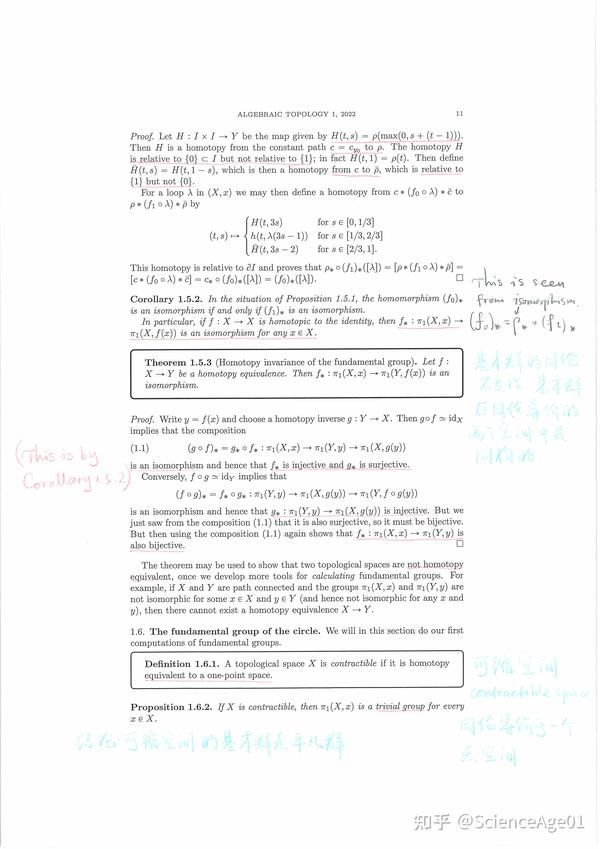 ALGEBRAIC TOPOLOGY 1, 2022 11
Proof. Let H : I × I → Y be the map given by H(t, s) = ρ(max(0, s + (t − 1))).
Then H is a homotopy from the constant path c = c_{y₀} to ρ. The homotopy H
is relative to {0} ⊂ I but not relative to {1}; in fact H(t, 1) = ρ(t). Then define
H̄(t, s) = H(t, 1 − s), which is then a homotopy from c to ρ̄, which is relative to
{1} but not {0}.
For a loop λ in (X, x) we may then define a homotopy from c ∗ (f₀ ∘ λ) ∗ c̄ to
ρ ∗ (f₁ ∘ λ) ∗ ρ̄ by
H(t, 3s) for s ∈ [0, 1/3]
(t, s) ↦ { h(t, λ(3s − 1)) for s ∈ [1/3, 2/3]
H̄(t, 3s − 2) for s ∈ [2/3, 1].
This homotopy is relative to ∂I and proves that ρ∗ ∘ (f₁)∗([λ]) = [ρ ∗ (f₁ ∘ λ) ∗ ρ̄] =
[c ∗ (f₀ ∘ λ) ∗ c̄] = c∗ ∘ (f₀)∗([λ]) = (f₀)∗([λ]). □
This is seen
from isomorphism.
(f₀)∗ = ρ∗ ∘ (f₁)∗
Corollary 1.5.2. In the situation of Proposition 1.5.1, the homomorphism (f₀)∗
is an isomorphism if and only if (f₁)∗ is an isomorphism.
In particular, if f : X → X is homotopic to the identity, then f∗ : π₁(X, x) →
π₁(X, f(x)) is an isomorphism for any x ∈ X.
Theorem 1.5.3 (Homotopy invariance of the fundamental group). Let f :
X → Y be a homotopy equivalence. Then f∗ : π₁(X, x) → π₁(Y, f(x)) is an
isomorphism.
基本群的同伦
不变性 基本群
在同伦等价的
两个空间中是
同构的
Proof. Write y = f(x) and choose a homotopy inverse g : Y → X. Then g∘f ≃ id_X
implies that the composition
(1.1) (g ∘ f)∗ = g∗ ∘ f∗ : π₁(X, x) → π₁(Y, y) → π₁(X, g(y))
(This is by
Corollary 1.5.2)
is an isomorphism and hence that f∗ is injective and g∗ is surjective.
Conversely, f ∘ g ≃ id_Y implies that
(f ∘ g)∗ = f∗ ∘ g∗ : π₁(Y, y) → π₁(X, g(y)) → π₁(Y, f ∘ g(y))
is an isomorphism and hence that g∗ : π₁(Y, y) → π₁(X, g(y)) is injective. But we
just saw from the composition (1.1) that it is also surjective, so it must be bijective.
But then using the composition (1.1) again shows that f∗ : π₁(X, x) → π₁(Y, y) is
also bijective. □
The theorem may be used to show that two topological spaces are not homotopy
equivalent, once we develop more tools for calculating fundamental groups. For
example, if X and Y are path connected and the groups π₁(X, x) and π₁(Y, y) are
not isomorphic for some x ∈ X and y ∈ Y (and hence not isomorphic for any x and
y), then there cannot exist a homotopy equivalence X → Y.
1.6. The fundamental group of the circle. We will in this section do our first
computations of fundamental groups.
Definition 1.6.1. A topological space X is contractible if it is homotopy
equivalent to a one-point space.
可缩空间
contractible space
同伦等价于一个
点空间
Proposition 1.6.2. If X is contractible, then π₁(X, x) is a trivial group for every
x ∈ X.
结论:可缩空间的基本群是平凡群
知乎 @ScienceAge01